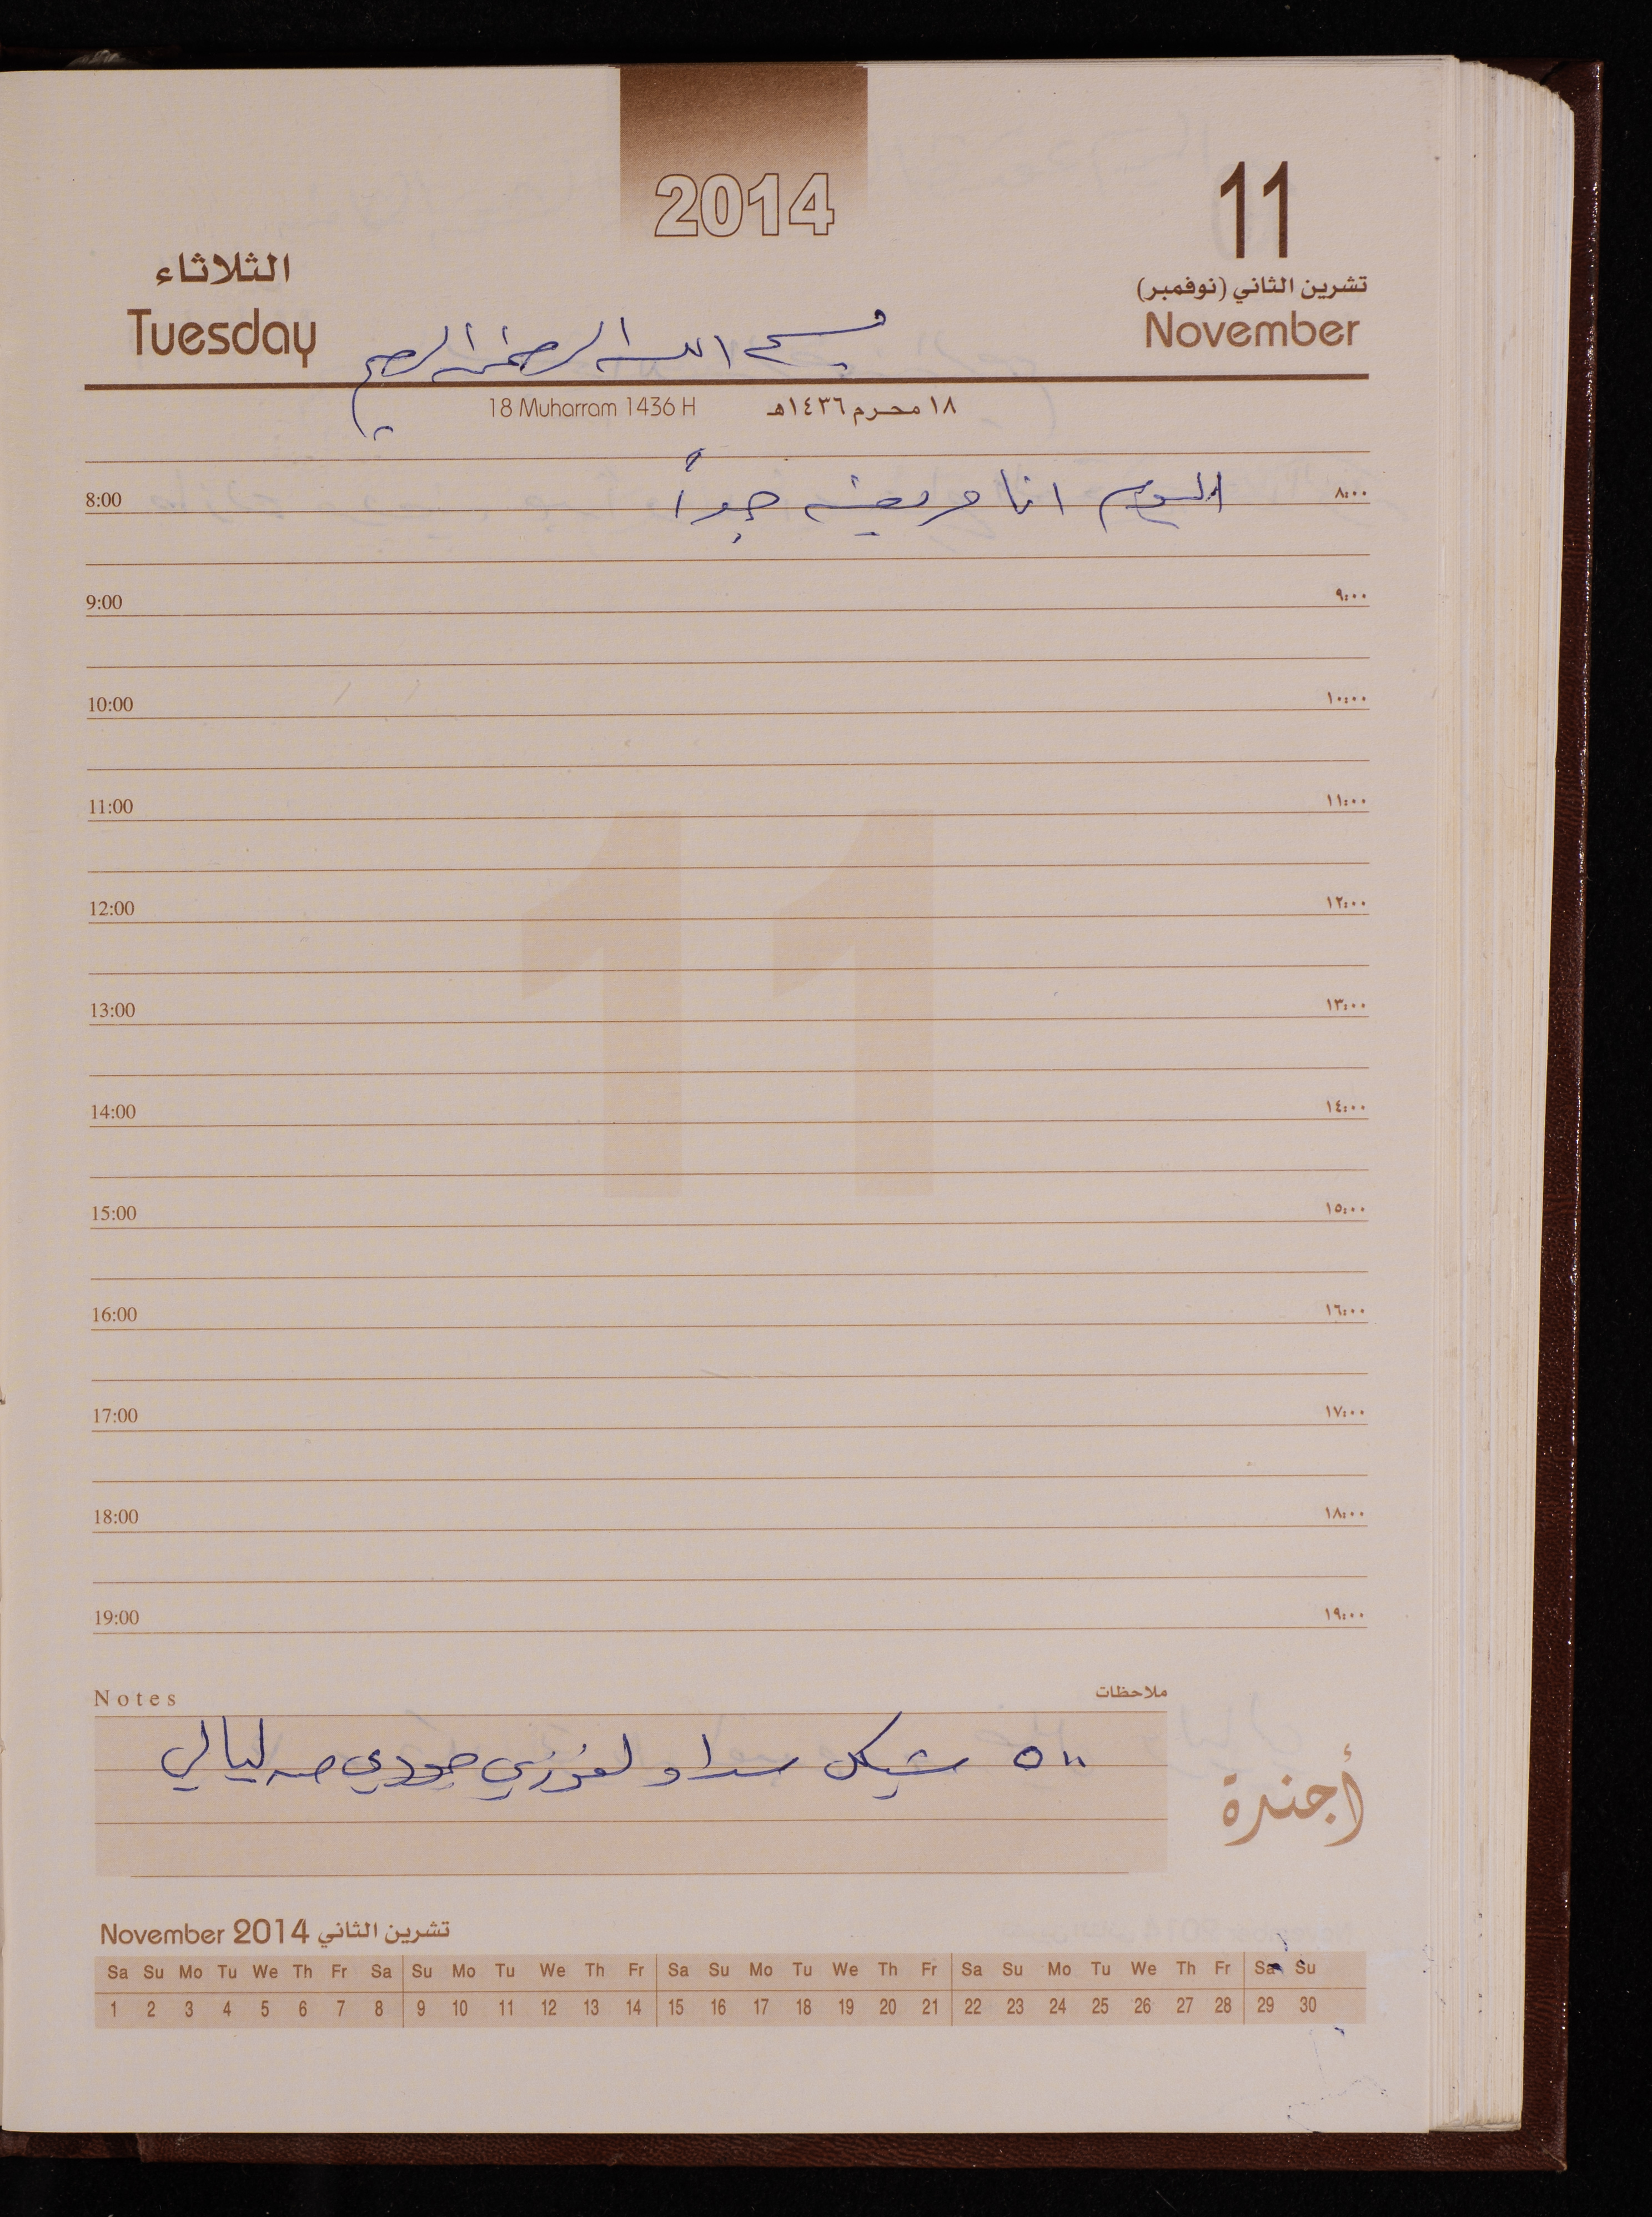 2014
11
الثلاثاء
تشرين الثاني (نوفمبر)
Tuesday
November
بسم الله الرحمن الرحيم
18 Muharram 1436 H ١٨ محرم ١٤٣٦هـ
8:00 اليوم انا مريضه جداً ٨:٠٠
9:00 ٩:٠٠
10:00 ١٠:٠٠
11:00 ١١:٠٠
11
12:00 ١٢:٠٠
13:00 ١٣:٠٠
14:00 ١٤:٠٠
15:00 ١٥:٠٠
16:00 ١٦:٠٠
17:00 ١٧:٠٠
18:00 ١٨:٠٠
19:00 ١٩:٠٠
Notes ملاحظات
٥٠٠ شيكل سداد لفوزي جودي من ليالي
أجندة
November 2014 تشرين الثاني
Sa Su Mo Tu We Th Fr Sa Su Mo Tu We Th Fr Sa Su Mo Tu We Th Fr Sa Su Mo Tu We Th Fr Sa Su
1 2 3 4 5 6 7 8 9 10 11 12 13 14 15 16 17 18 19 20 21 22 23 24 25 26 27 28 29 30